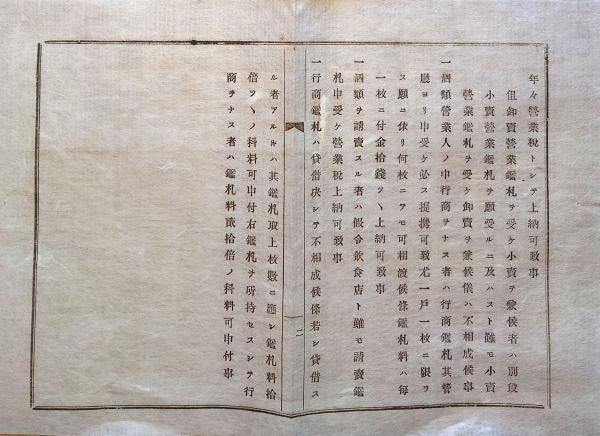 年々營業税トシテ上納可致事
但卸賣營業鑑札ヲ受ケ小賣ヲ兼候者ハ別段
小賣營業鑑札ヲ願受ルニ及ハスト雖モ小賣
營業鑑札ヲ受ケ卸賣ヲ兼候儀ハ不相成候事
一酒類營業人ノ中行商ヲナス者ハ行商鑑札其管
廳ヨリ申受ケ必ス提携可致尤一戸一枚ニ限ラ
ス願ニ依リ何枚ニテモ可相渡候條鑑札料ハ毎
一枚ニ付金拾錢ツヽ上納可致事
一酒類ヲ請賣スル者ハ假令飮食店ト雖モ請賣鑑
札申受ケ營業税上納可致事
一行商鑑札ハ貸借决シテ不相成候條若シ貸借ス
二
ル者アルトキハ其鑑札取上枚數ニ應シ鑑札料拾
倍ツヽノ科料可申付右鑑札ヲ所持セスシテ行
商ヲナス者ハ鑑札料貳拾倍ノ科料可申付事